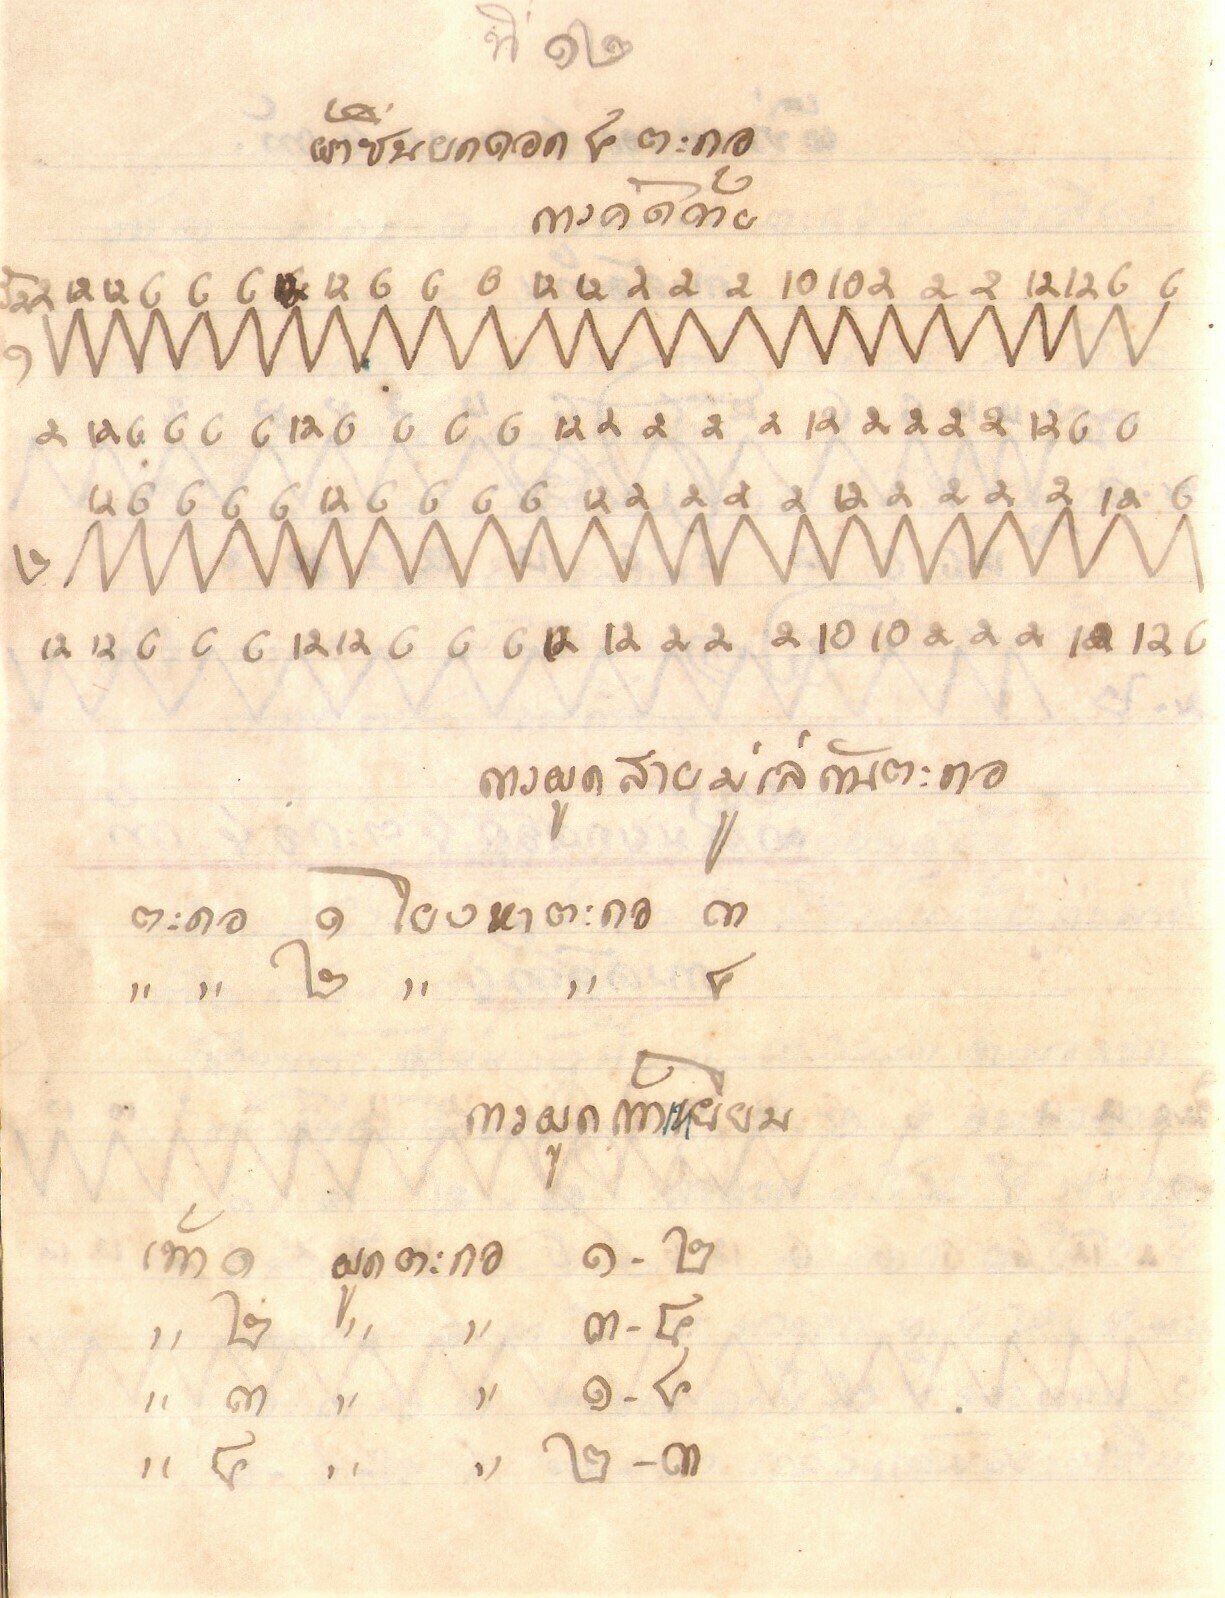 ที่ ๑๒
ผ้าซิ่นยกดอก ๔ ตะกอ
การคัดท้าย
๒ 12 12 6 6 6 12 6 6 6 12 12 2 2 2 10 10 2 2 2 12 12 6 6
๑
2 12 6 6 6 6 12 6 6 6 6 12 2 2 2 2 12 2 2 2 2 12 6 6
12 6 6 6 6 12 6 6 6 6 12 2 2 2 2 12 2 2 2 2 12 6
๒
12 12 6 6 6 12 12 6 6 6 12 12 2 2 2 10 10 2 2 2 12 12 6
การผูกสายมู่เล่กับตะกอ
ตะกอ ๑ โยงหาตะกอ ๓
" " ๒ " " ๔
การผูกเท้าเหยียบ
เท้า ๑ ผูกตะกอ ๑ - ๒
" ๒ " " ๓ - ๔
" ๓ " " ๑ - ๔
" ๔ " " ๒ - ๓